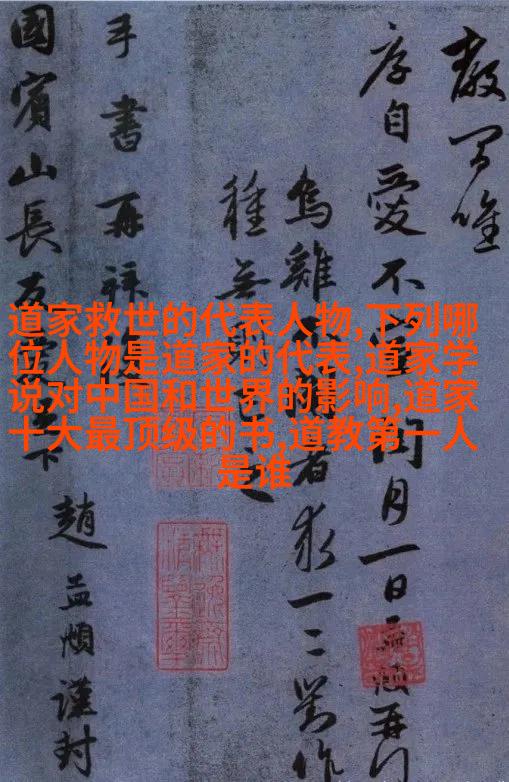 道家救世的代表人物,下列哪
位人物是道家的代表,道家学
说对中国和世界的影响,道家
十大最顶级的书,道教第一人
是谁
唯
自愛不宣閏月一日孟頫再拜
烏雞者求一二對作
種無之
手書再拜
國賓山長下
趙孟頫謹封